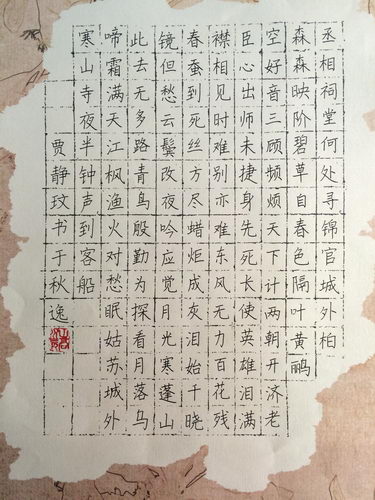 丞相祠堂何处寻锦官城外柏
森森映阶碧草自春色隔叶黄鹂
空好音三顾频烦天下计两朝开济老
臣心出师未捷身先死长使英雄泪满
襟相见时难别亦难东风无力百花残
春蚕到死丝方尽蜡炬成灰泪始干晓
镜但愁云鬓改夜吟应觉月光寒蓬山
此去无多路青鸟殷勤为探看月落乌
啼霜满天江枫渔火对愁眠姑苏城外
寒山寺夜半钟声到客船
贾静玟书于秋逸